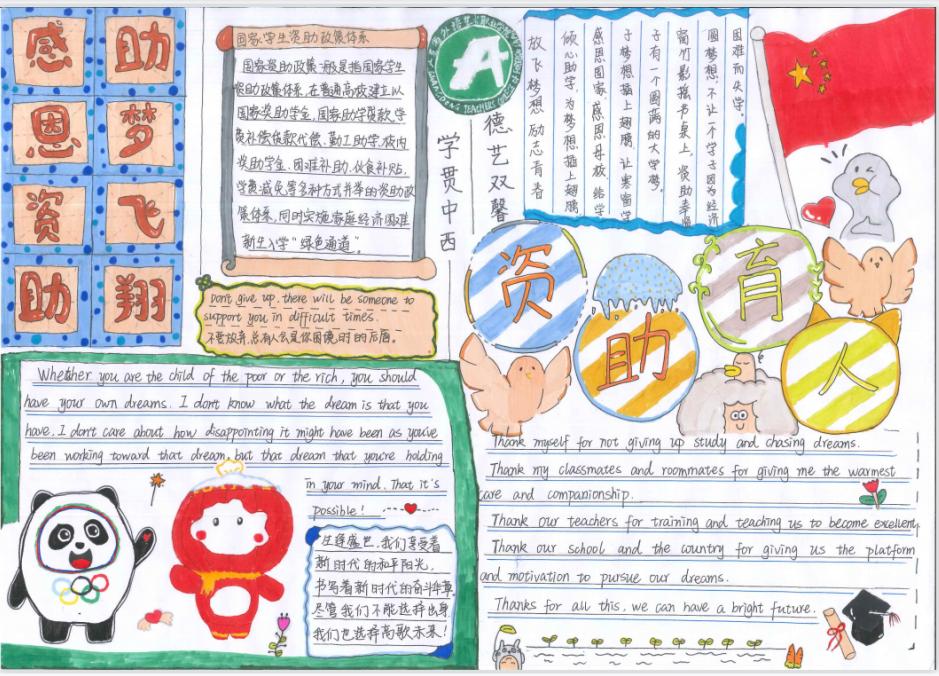 感助
恩梦
资飞
助翔
国家学生资助政策体系
国家资助政策一般是指国家学生
资助政策体系,在普通高校建立以
国家奖助学金、国家助学贷款、学
费补偿贷款代偿、勤工助学、校内
奖助学金、困难补助、伙食补贴、
学费减免等多种方式并举的资助政
策体系,同时实施家庭经济困难
新生入学“绿色通道”。
Don't give up, there will be someone to
support you in difficult times.
不要放弃,总有人会是你困境时的后盾。
TEACHERS
德艺双馨
学贯中西
困难而失学。
圆梦想,不让一个学子因为经济
窗竹影摇书桌上,资助幸
子有一个圆满的大学梦。
子梦想插上翅膀,让寒窗学
感恩国家,感恩母校,给学
倾心助学,为梦想插上翅膀
放飞梦想 励志青春
资
助
育
人
Whether you are the child of the poor or the rich, you should
have your own dreams. I don't know what the dream is that you
have. I don't care about how disappointing it might have been as you've
been working toward that dream, but that dream that you're holding
in your mind. That it's
possible!
生逢盛世,我们享受着
新时代的和平阳光,
书写着新时代的奋斗华章
尽管我们不能选择出身
我们也选择高歌未来!
Thank myself for not giving up study and chasing dreams.
Thank my classmates and roommates for giving me the warmest
care and companionship.
Thank our teachers for training and teaching us to become excellent.
Thank our school and the country for giving us the platform
and motivation to pursue our dreams.
Thanks for all this, we can have a bright future.